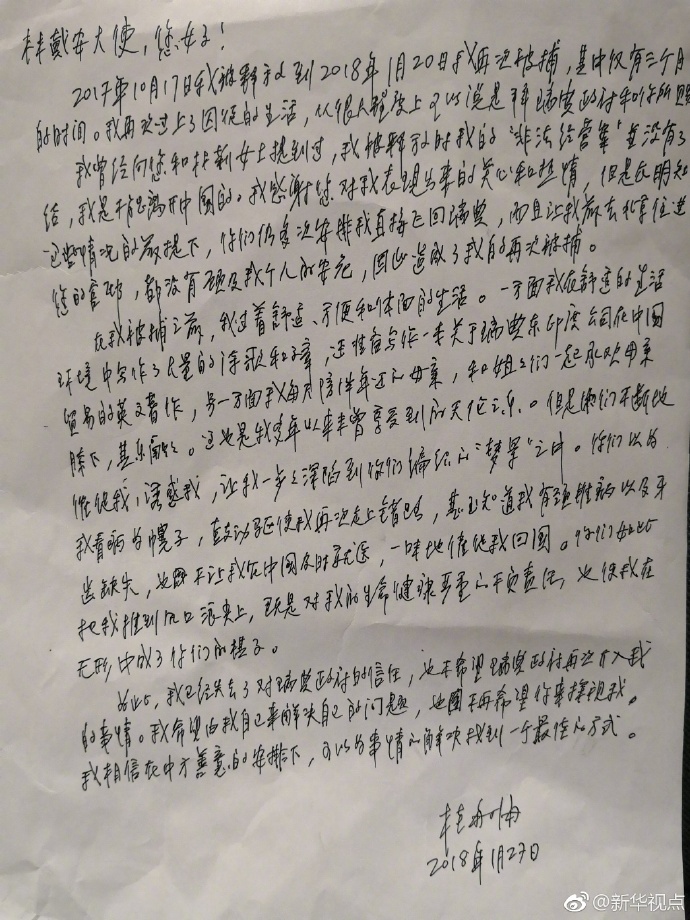 林戴安大使，您好！
2017年10月17日我被释放到2018年1月20日我再次被捕，其中仅有三个月
的时间。我再次过上了囚徒的生活，从很大程度上可以说是拜瑞典政府和你所赐
我曾经向您和 女士提到过，我被释放时我的“非法经营案”并没有了
结，我是不能离开中国的。我感谢您对我表现出来的关心和热情，但是在明知
这些情况的前提下，你们仍多次安排我直接飞回瑞典，而且让我前去北京住进
您的官邸，都没有顾及我个人的安危，因此造成了我的再次被捕。
在我被捕之前，我过着舒适、方便和体面的生活。一方面我在舒适的生活
环境中写作了大量的诗歌和文章，还准备写作一本关于瑞典东印度公司在中国
贸易的英文著作，另一方面我每天陪伴年迈的母亲，和姐姐们一起承欢母亲
膝下，其乐融融。这也是我多年以来未曾享受到的天伦之乐。但是你们不断地
催促我，诱惑我，让我一步步深陷到你们编织的“梦景”之中。你们以为
我看病为幌子，鼓动驱使我再次走上错路，甚至知道我有颈椎病以及牙
齿缺失，也 不让我在中国及时就医，一味地催促我回国。你们如此
把我推到风口浪尖上，既是对我的生命健康严重的不负责任，也使我在
无形中成了你们的棋子。
为此，我已经失去了对瑞典政府的信任，也不希望瑞典政府再次介入我
的事情。我希望由我自己来解决自己的问题，也 不再希望你来探视我。
我相信在中方善意的安排下，可以为事情的解决找到一个最佳的方式。
桂敏海
2018年1月27日
@新华视点